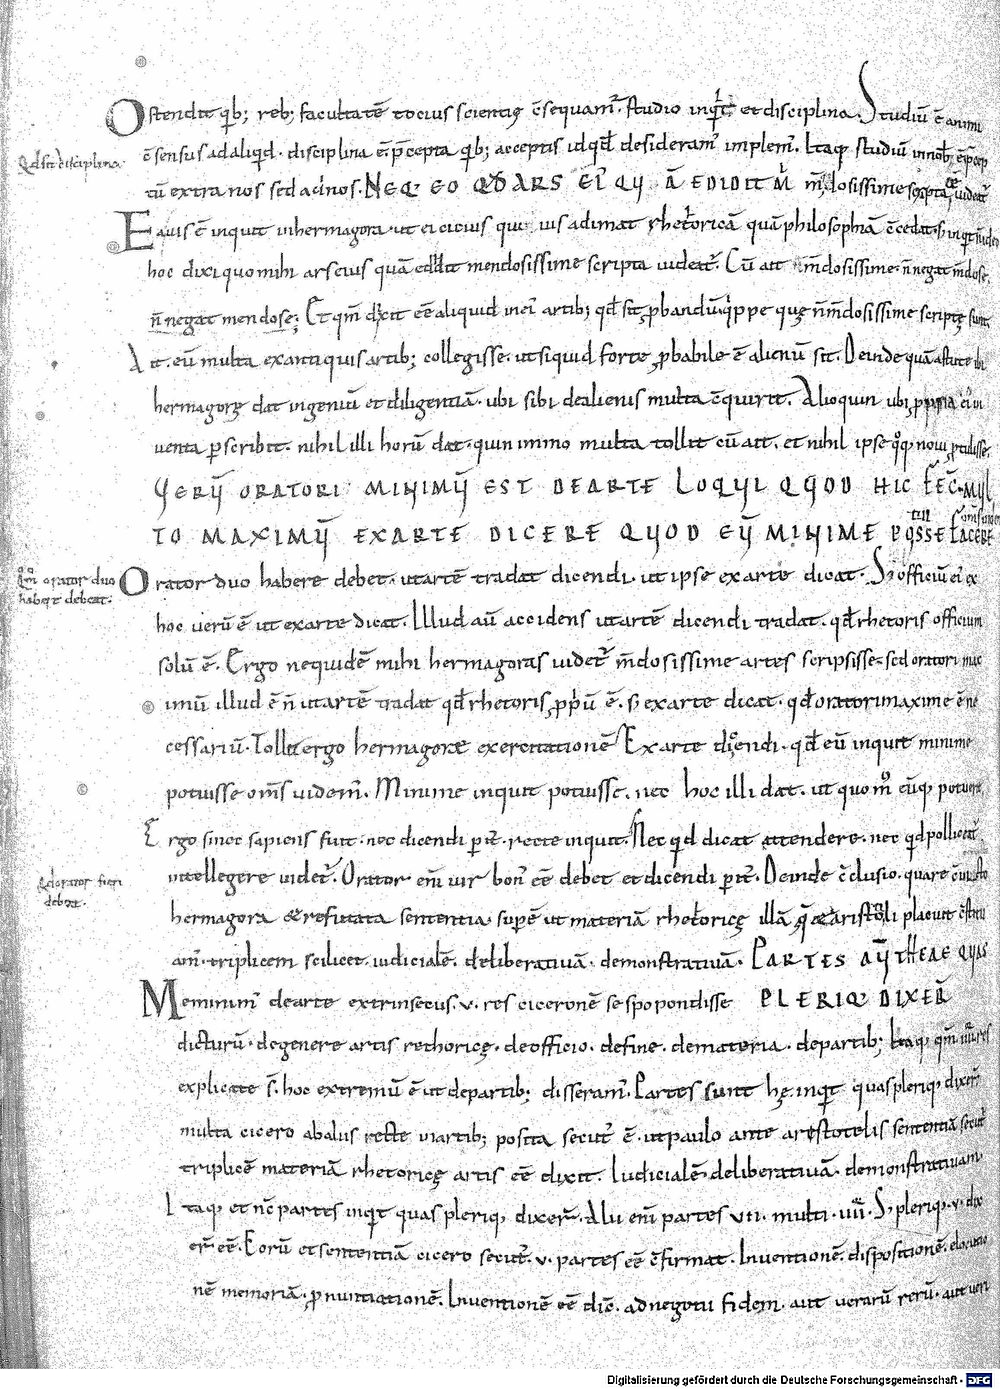 Ostendit qib; reb; facultatē tocius scientię c̄sequam̄. studio inq̇t et disciplina. Studiū ē animi
Qd sit disciplina
c̄sensus ad aliqid. disciplina ē p̄cepta qib; acceptis id qd desideram̄ implem̄. Itaq studiū in nob ē
tū extra nos sed ad nos. NEQ; EO QD ARS EI QUĀ EDIDIT M̄ m̄dosissime scripta videat̄
Eavis ē inquit in hermagora ut ei cicius qui uis adimat rhetoricā quā philosophiā c̄cedat. S; inq̇t
hoc dixi quo mihi ars eius quā edidit mendosissime scripta videat̄. Cū ait m̄dosissime. n̄ negat m̄dose.
n̄ negat mendose; Et qm̄ dixit eē aliquid inei artib; qd sit pbandū. qippe quę n̄ m̄dosissime scriptę sunt
Ait. eū multa ex antiquis artib; collegisse. ut si quid forte pbabile ē alienū sit. Deinde quā astute ibi
hermagorę dat ingeniū et diligentiā. ubi sibi de alienis multa c̄quirit. Alioquin ubi ppria
venta pscribit. nihil illi horū dat. quin immo multa tollit cū ait. et nihil ipse qoq novi ptulisse.
VERŪ ORATORI MINIMŪ EST DE ARTE LOQUI QUOD HIC FEC̄. MUL
TO MAXIMŪ EX ARTE DICERE QUOD EŪ MINIME POSSE FACERE
Qm̄ orator duo
habere debeat.
Orator duo habere debet. ut artē tradat dicendi. ut ipse ex arte dicat. S; officiū ei ex
hoc verū ē ut ex arte dicat. Illud aū accidens ut artē dicendi tradat. qd rhetoris officium
solū ē. Ergo nequidē mihi hermagoras videt̄ m̄dosissime artes scripsisse. sed oratori mi
imū illud ē n̄ ut artē tradat qd rhetoris ppriū ē. S; ex arte dicat. qd oratori maxime ē ne
cessariū. Tollit ergo hermagorae exercitationē Ex arte dicendi. qd eū inquit minime
potuisse om̄s videm̄. Minime inquit potuisse. nec hoc illi dat. ut quom̄ cūq potuerit
Ergo sinet sapiens fuit. nec dicendi pit̄. recte inquit. Nec qid dicat attendere. nec qid polliceat̄
Qd orator fieri
debeat.
intellegere videt̄. Orator eni vir bon̄ eē debet et dicendi pit̄. Deinde c̄clusio. quare
hermagora & refutata sententia. supē ut materiā rhetoricę illā q̄ & aristoteli placuit c̄stitu
am̄. triplicem scilicet. iudicialē. deliberativā. demonstrativā. PARTES AŪT HEAE QUAS
Meminim̄ de arte extrinsecus .v. res ciceronē se spopondisse PLERIQ; DIXER̄
dicturū. de genere artis rethoricę. de officio. de fine. de materia. de partib; Itaq qm̄
explicite s̄. hoc extremū ē ut de partib; disseram̄. Partes sunt hę inq̇t quas pleriq dixer̄
multa cicero abalus recte in artib; posita secut̄ ē. ut paulo ante aristotelis sententiā secut̄
triplicē materiā rhetoricę artis eē dixit. Iudicialē. deliberativā. demonstrativam
Itaq et nc̄ partes inq̇t quas pleriq dixer̄. Alii eni partes vii. multi. iiii. S; pleriq .v. dix
er̄ eē. Eorū et sententiā cicero secut̄. v. partes eē c̄firmat. Inventionē. dispositionē. elocutio
nē memoriā. pnuntiationē. Inventionē eē dic̄. ad negotii fidem. aut verarū rerū. aut veri
Digitalisierung gefördert durch die Deutsche Forschungsgemeinschaft - DFG